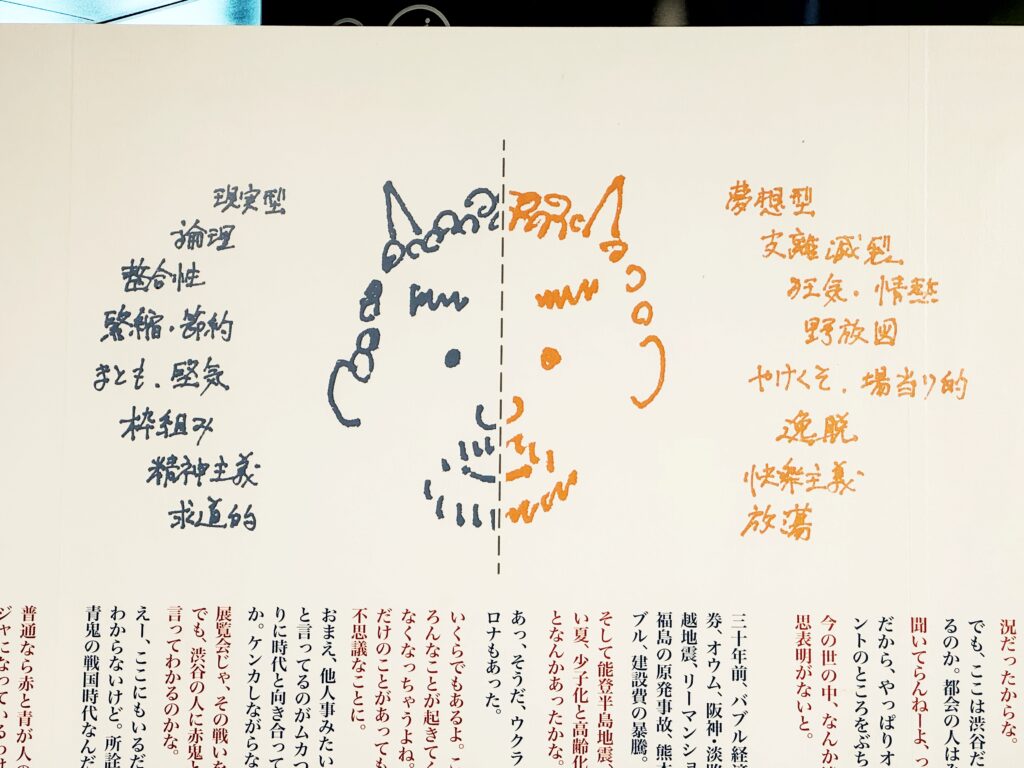 現実型
論理
整合性
緊縮・節約
まとも、堅気
枠組み
精神主義
求道的
夢想型
支離滅裂
狂気・情熱
野放図
やけくそ、場当り的
逸脱
快楽主義
放蕩
況だったからな。
でも、ここは渋谷だ
るのか。都会の人は
聞いてらんねーよ、っ
だから、やっぱりオ
ントのところをぶち
今の世の中、なんか
思表明がないと。
三十年前、バブル経済
券、オウム、阪神・淡路
越地震、リーマンショ
福島の原発事故、熊本
ブル、建設費の暴騰。
そして能登半島地震、
い夏、少子化と高齢化
となんかあったかな。
あっ、そうだ、ウクラ
ロナもあった。
いくらでもあるよ。こ
ろんなことが起きてく
なくなっちゃうよね。
だけのことがあっても
不思議なことに。
おまえ、他人事みたい
と言ってるのがムカつ
りに時代と向き合って
か。ケンカしながらな
展覧会じゃ、その戦いを
でも、渋谷の人に赤鬼と
言ってわかるのかな。
えー、ここにもいるだ
わからないけど。所詮
青鬼の戦国時代なんだ
普通なら赤と青が人の
ジャになっている